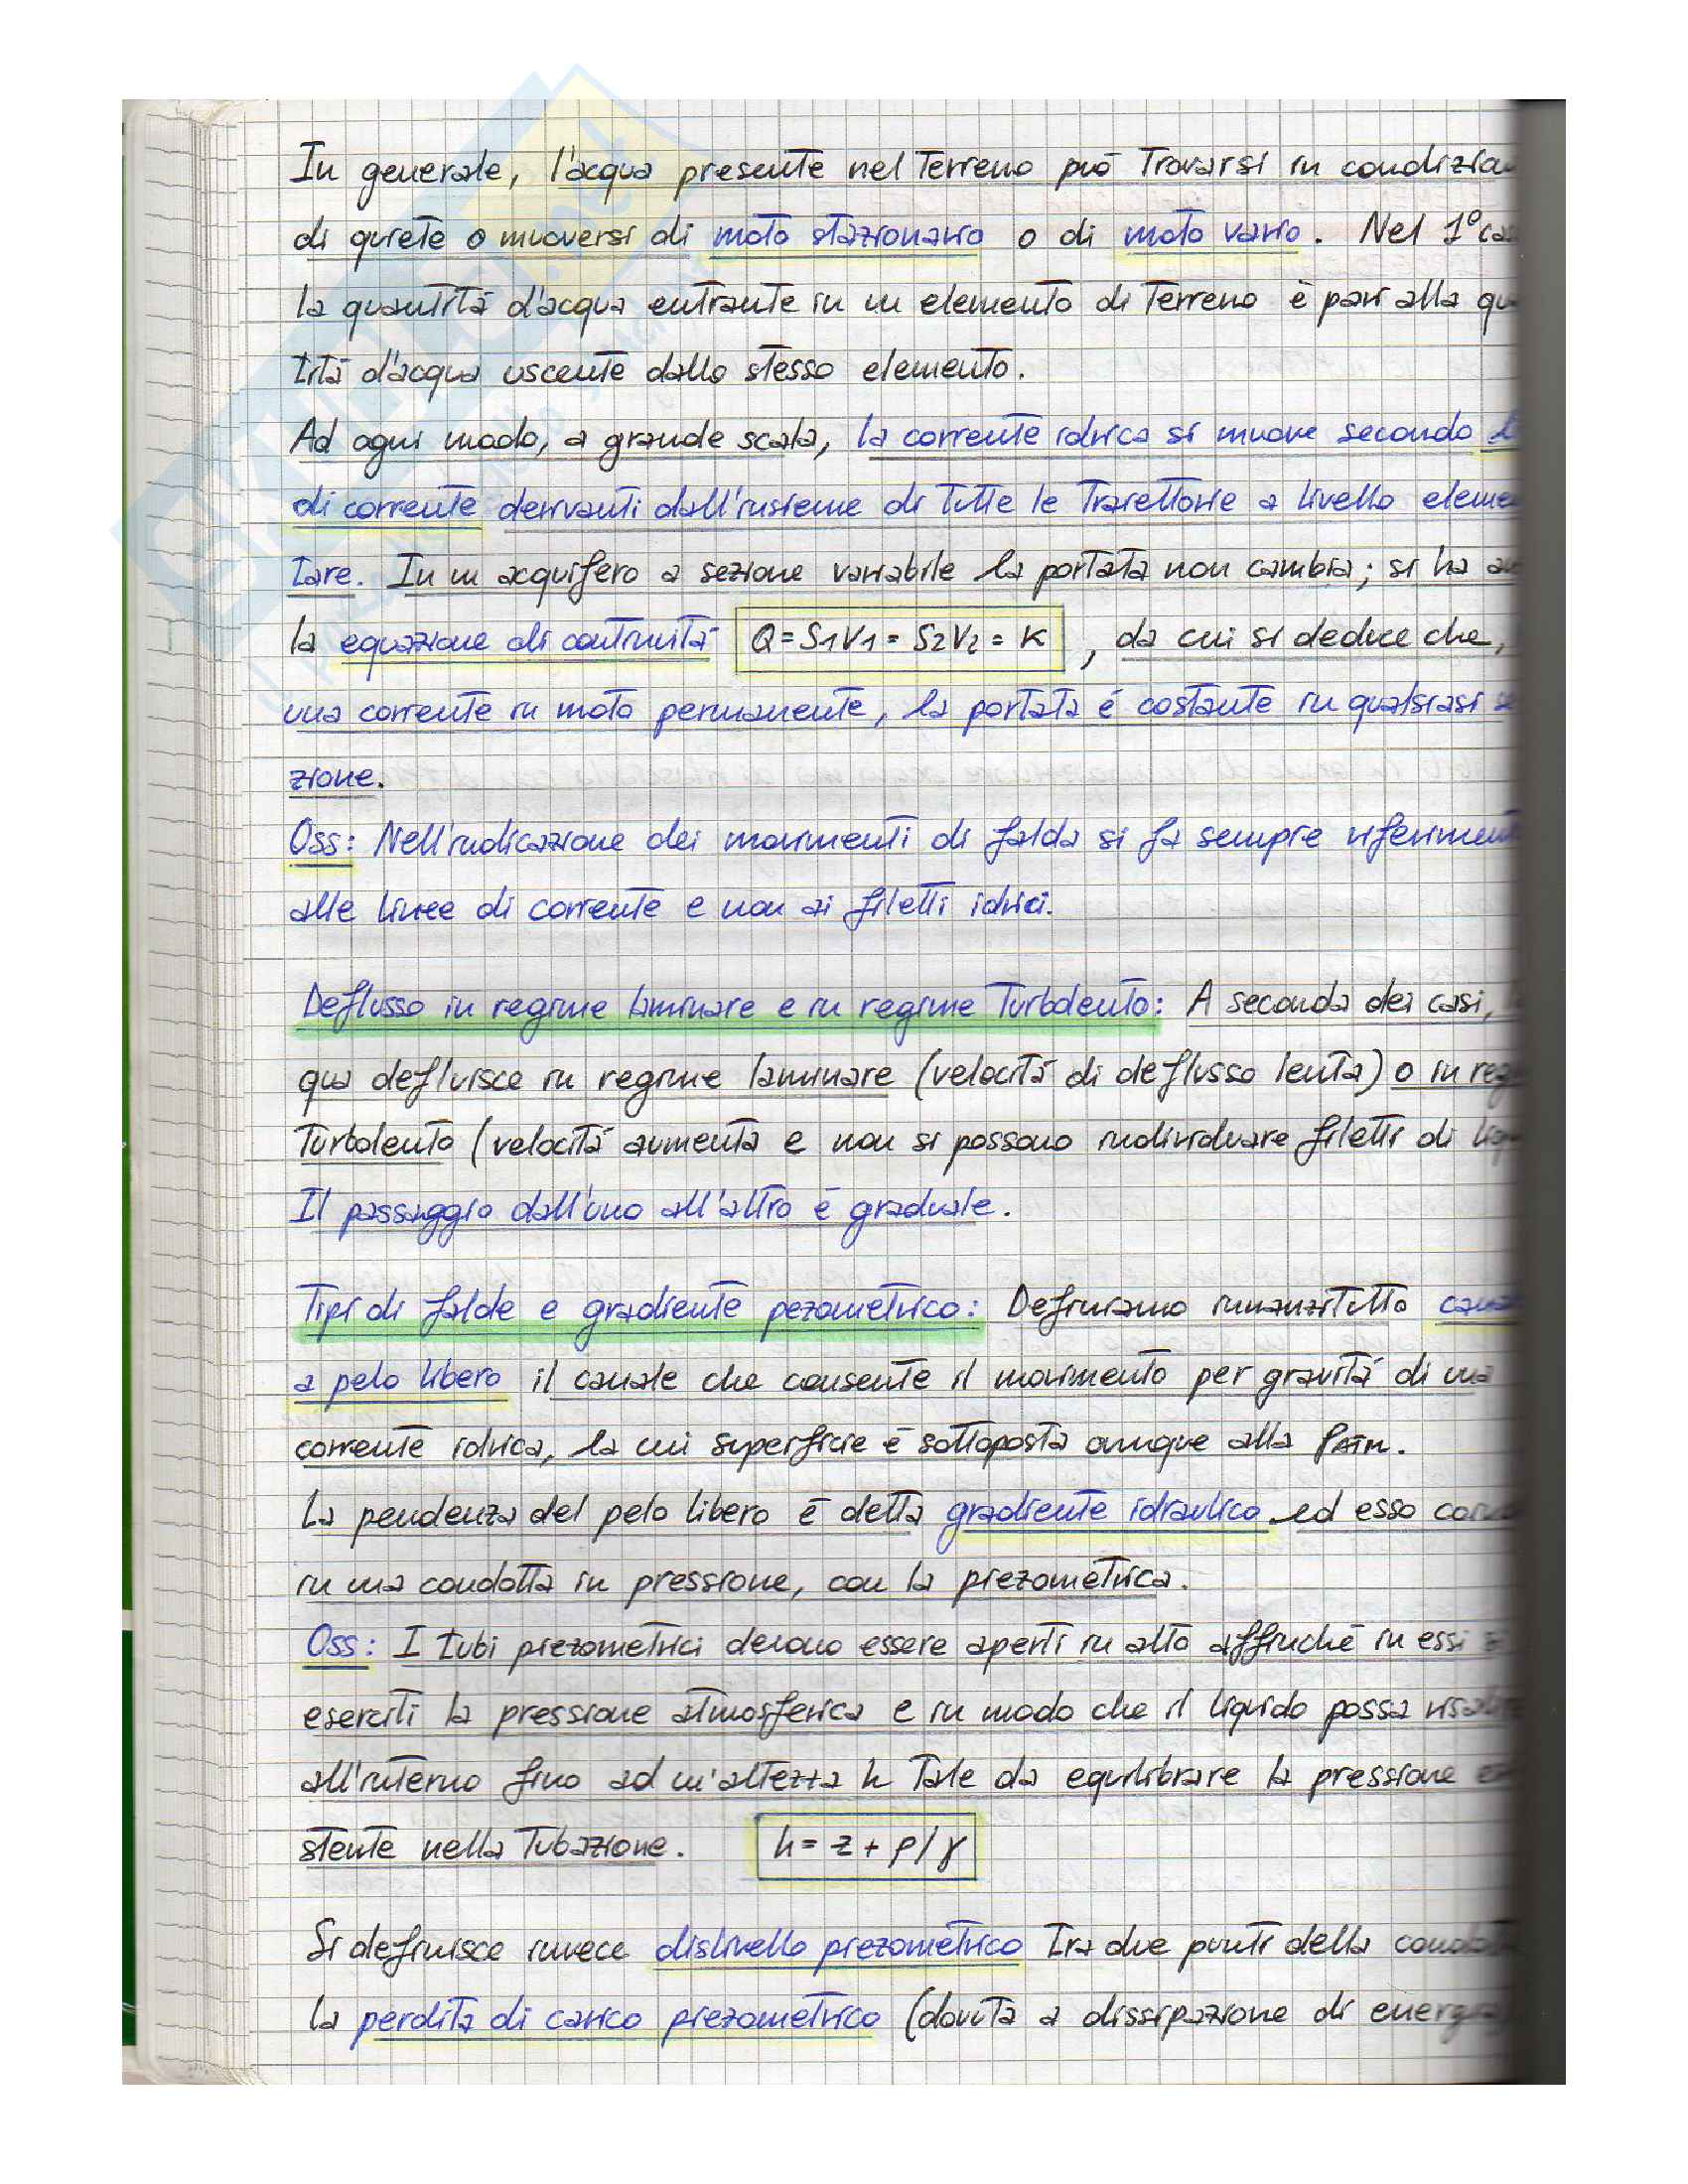 In generale, l'acqua presente nel terreno può trovarsi in condizion
di quiete o muoversi di moto stazionario o di moto vario. Nel 1° cas
la quantità d'acqua entrante in un elemento di terreno è pari alla qu
tità d'acqua uscente dallo stesso elemento.
Ad ogni modo, a grande scala, la corrente idrica si muove secondo
di corrente derivanti dall'insieme di tutte le traiettorie a livello eleme
tare. In un acquifero a sezione variabile la portata non cambia; si ha
la equazione di continuità Q = S1V1 = S2V2 = K , da cui si deduce che,
una corrente in moto permanente, la portata è costante in qualsiasi se
zione.
Oss: Nell'indicazione dei movimenti di falda si fa sempre riferiment
alle linee di corrente e non ai filetti idrici.
Deflusso in regime laminare e in regime turbolento: A seconda dei casi,
qua defluisce in regime laminare (velocità di deflusso lenta) o in reg
turbolento (velocità aumenta e non si possono individuare filetti di liq
Il passaggio dall'uno all'altro è graduale.
Tipi di falde e gradiente pezometrico: Definiamo innanzitutto cana
a pelo libero il canale che consente il movimento per gravità di una
corrente idrica, la cui superficie è sottoposta ovunque alla PATM.
La pendenza del pelo libero è detta gradiente idraulico ed esso
in una condotta in pressione, con la piezometrica.
Oss: I tubi piezometrici devono essere aperti in alto affinché in essi si
eserciti la pressione atmosferica e in modo che il liquido possa risalire
all'interno fino ad un'altezza h tale da equilibrare la pressione esi
stente nella tubazione. h = z + p/γ
Si definisce invece dislivello piezometrico tra due punti della condott
la perdita di carico piezometrico (dovuta a dissipazione di energia)